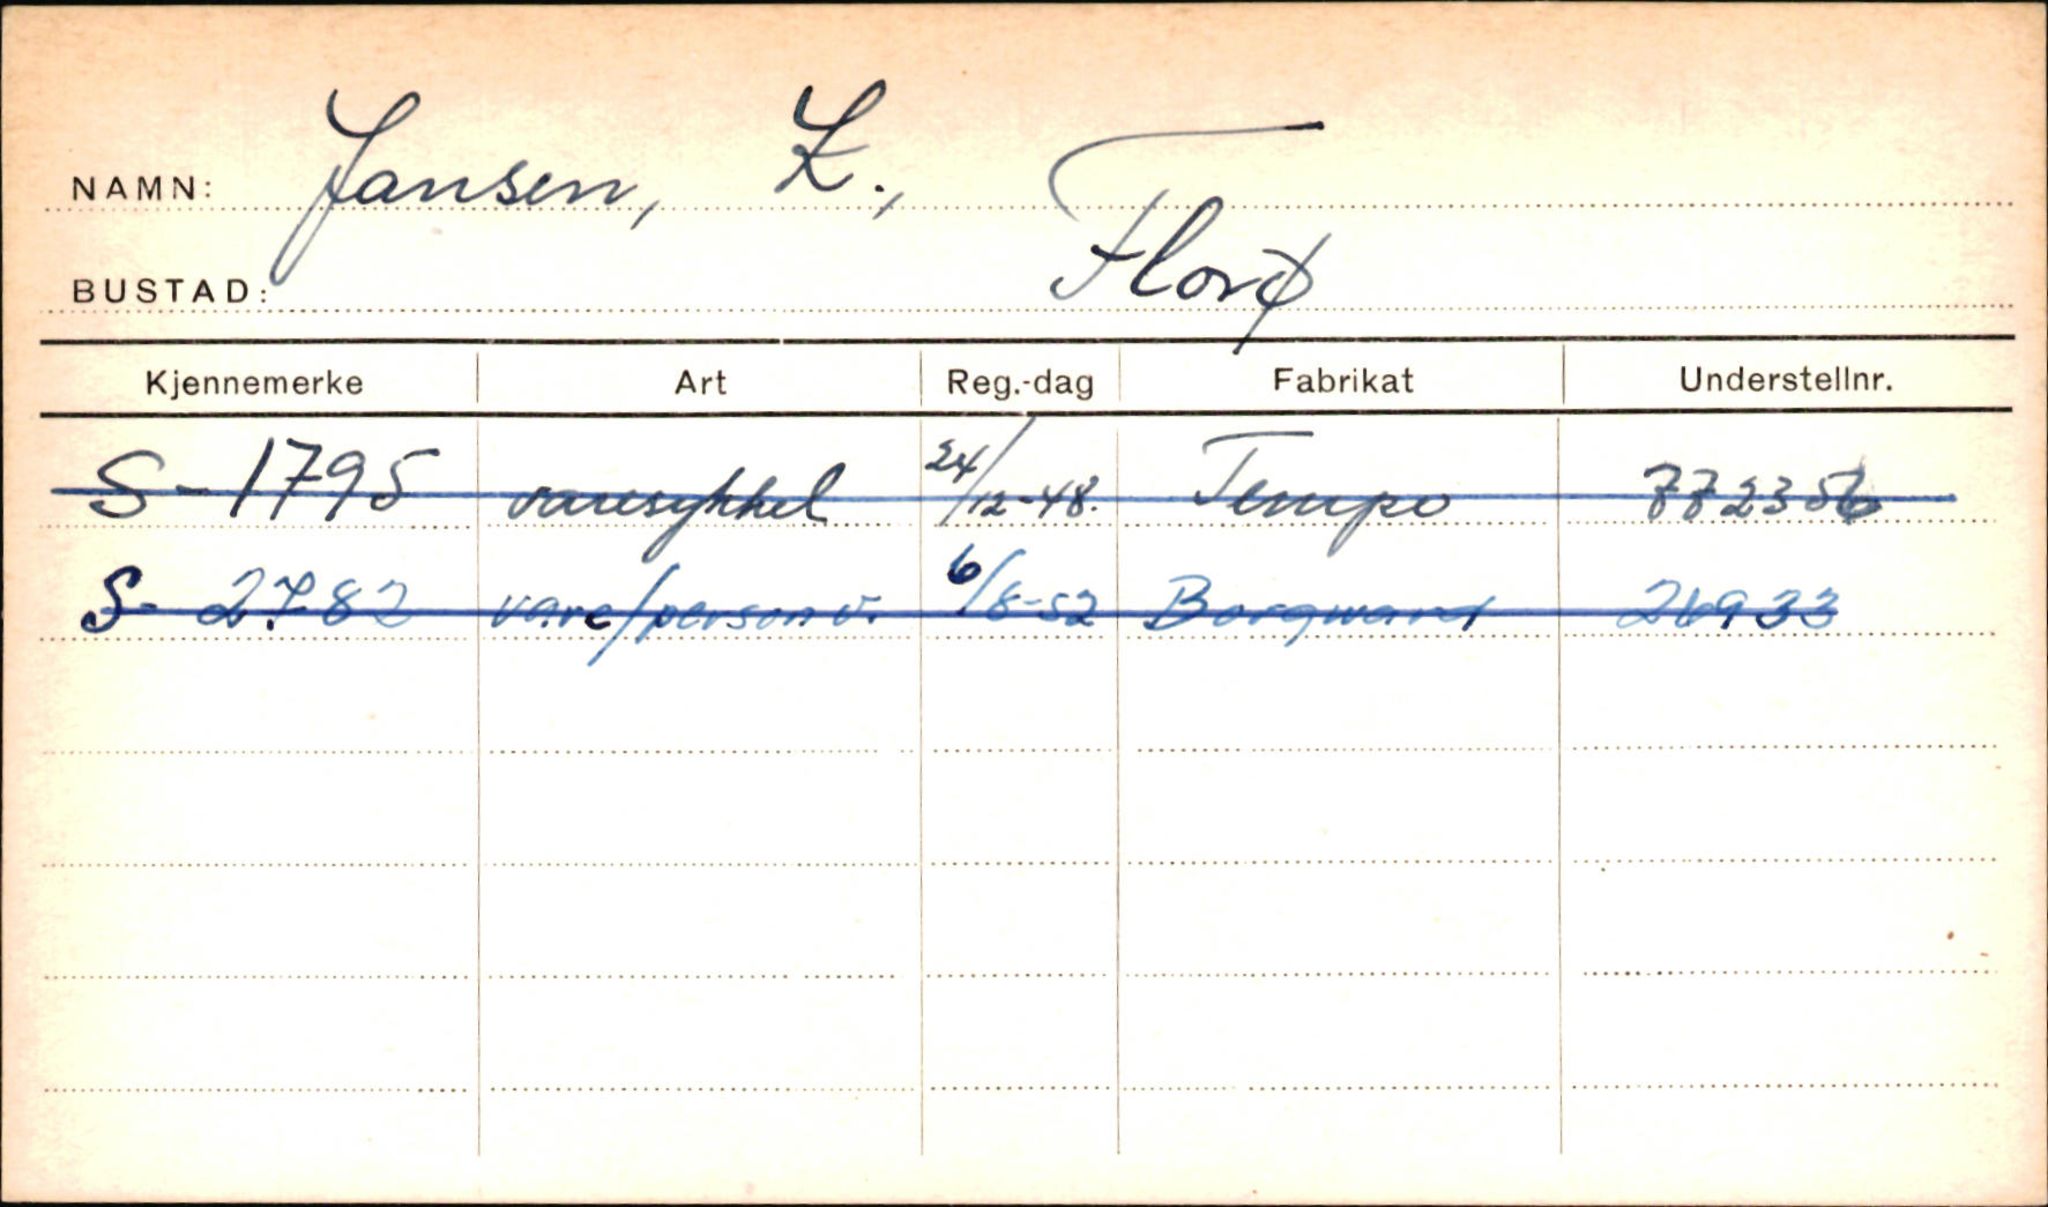 NAMN: Jansen, Z.,
BUSTAD: Florø
Kjennemerke Art Reg.-dag Fabrikat Understellnr.
S-1795 varesykkel 24/12-48. Tempo 772356
S- 2782 vare/person v. 6/8-52 Borgward 26933